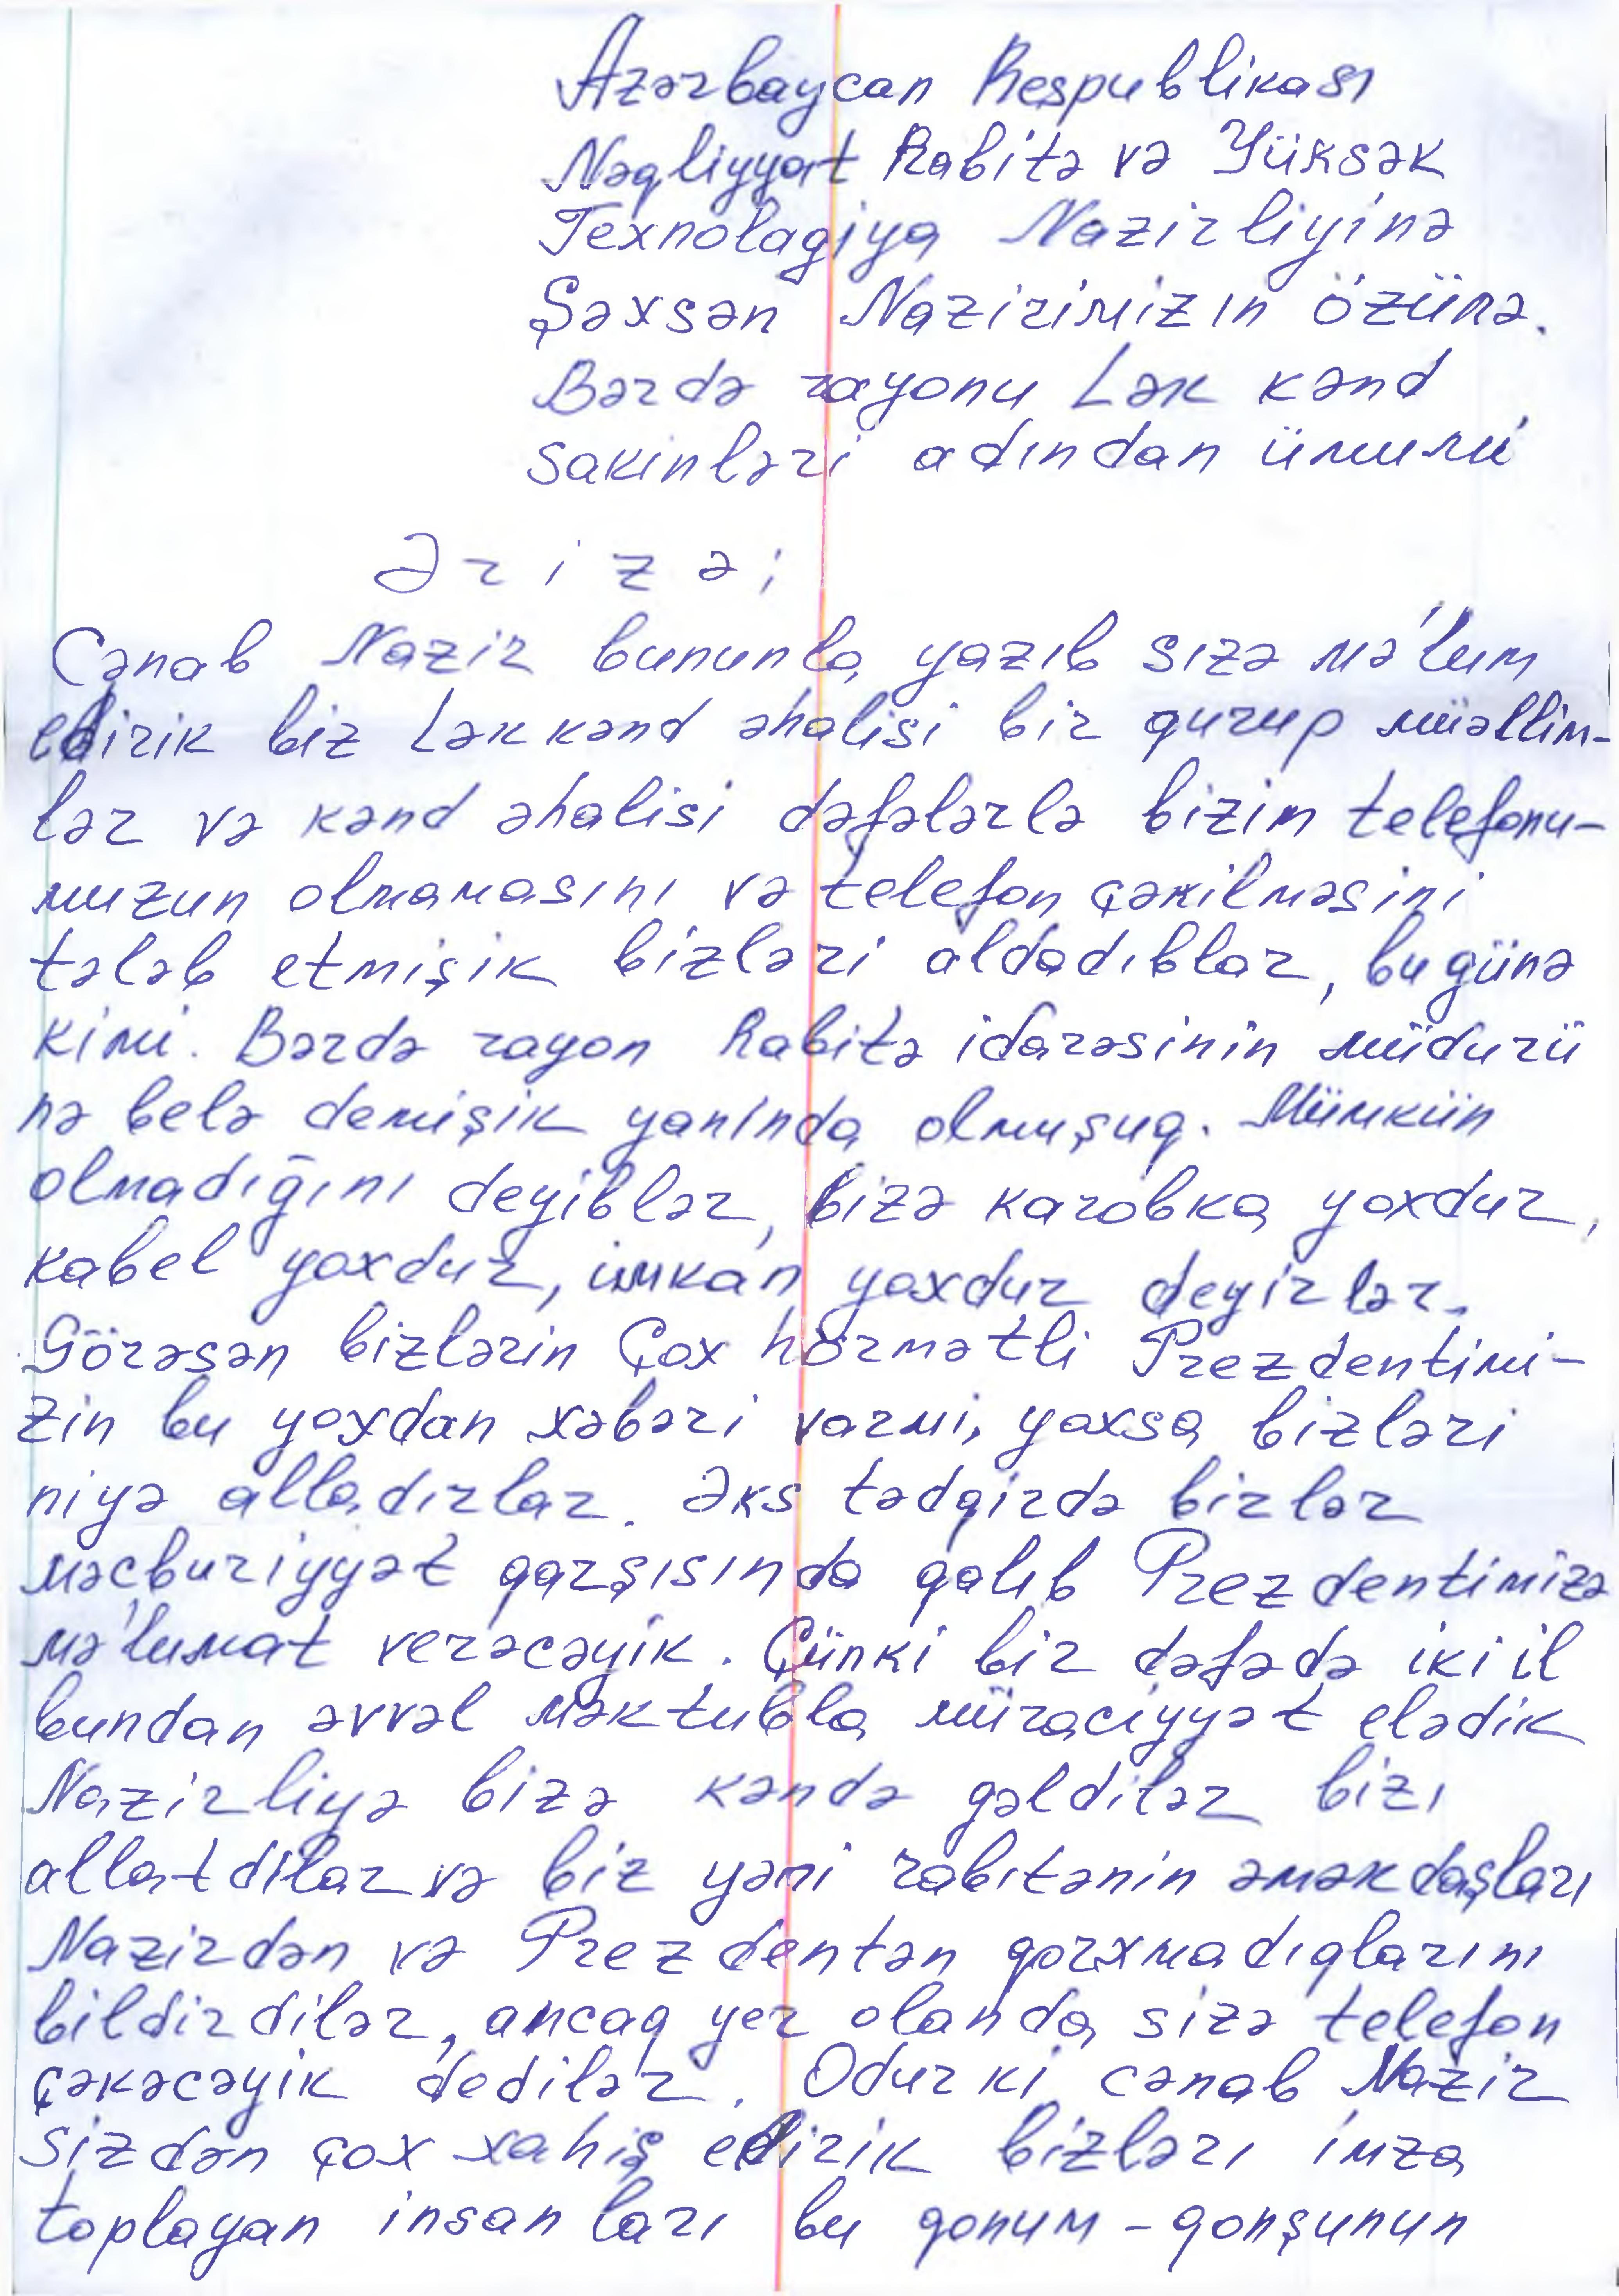 Azərbaycan Respublikası
Nəqliyyat Rabitə və Yüksək
Texnolagiya Nazirliyinə
Şəxsən Nazirimizın özünə.
Bərdə rayonu Lək kənd
sakinləri adından ümumi
Ərizə;
Cənab Nazir bununla yazıb sızə mə'lum
edirik biz Ləkkənd əhalisi bir qurup müəllim-
lər və kənd əhalisi dəfələrlə bizim telefonu-
muzun olmamasını və telefon çəkilməsini
tələb etmişik bizləri aldadıblar, bu günə
kimi. Bərdə rayon Rabitə idarəsinin müdurü
nə belə demişik yanında olmuşuq. Mümkün
olmadığını deyiblər, bizə karobka yoxdur,
kabel yoxdur, imkan yoxdur deyirlər.
Görəsən bizlərin Çox hörmətli Prezdentimi-
zin bu yoxdan xəbəri varmi, yoxsa bizləri
niyə alladırlar. Əks tədqirdə bizlər
məcburiyyət qarşısında qalıb Prezdentimizə
mə'lumat verəcəyik. Çünki bir dəfədə iki il
bundan əvvəl məktubla müraciyyət elədik
Nazirliyə bizə kəndə gəldilər bizı
allatdılar və biz yəni rabıtənin əməkdaşları
Nazirdən və Prezdentən qorxmadıqlarını
bildirdilər, ancaq yer olanda sizə telefon
çəkəcəyik dedilər. Odur ki cənab Nazir
Sizdən çox xahiş edirik bizlərı imza
toplayan insanları bu qonum-qonşunun